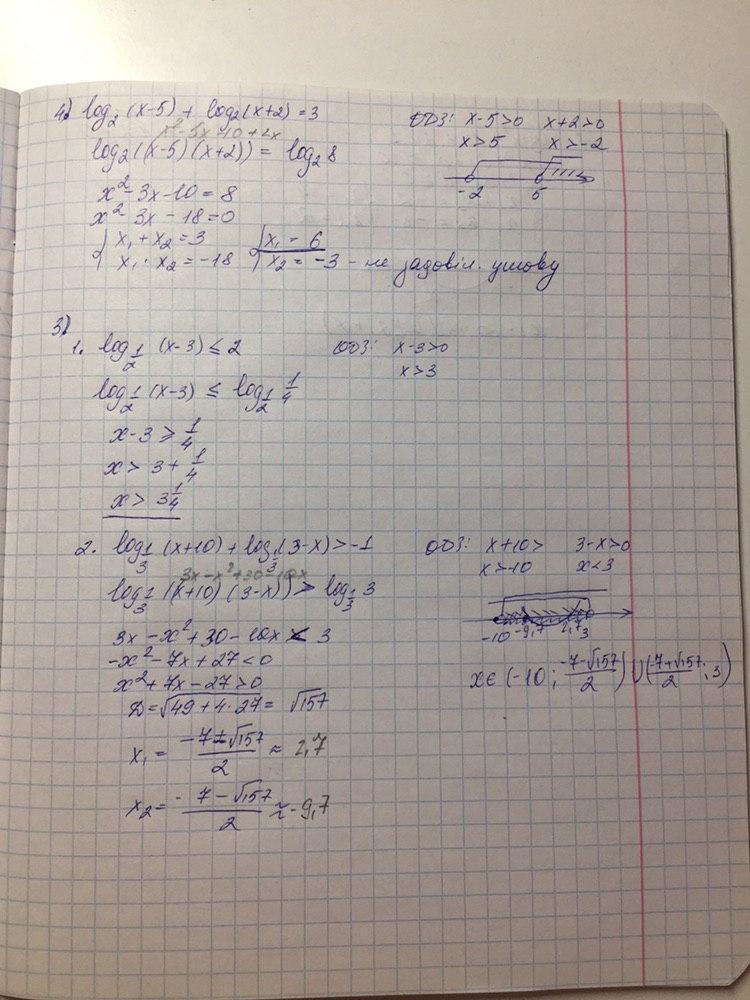 4) log₂ (x-5) + log₂(x+2) = 3
ОДЗ: x-5>0 x+2>0
x>5 x>-2
x²-5x-10+2x
log₂((x-5)(x+2)) = log₂8
-2 5
x²-3x-10=8
x²-3x-18=0
x₁+x₂=3
x₁·x₂=-18
x₁=6
x₂=-3 - не задовіл. умову
3)
1. log_{1/2} (x-3) ≤ 2
ОДЗ: x-3>0
x>3
log_{1/2} (x-3) ≤ log_{1/2} 1/4
x-3 ≥ 1/4
x > 3 + 1/4
x > 3 1/4
2. log_{1/3} (x+10) + log_{1/3}(3-x) > -1
ОДЗ: x+10> 3-x>0
x>-10 x<3
3x-x²+30-10x
log_{1/3} ((x+10)(3-x)) > log_{1/3} 3
-10 -9,7 2,7 3
3x-x²+30-10x < 3
-x²-7x+27<0
x²+7x-27>0
x∈(-10; (-7-√157)/2) ∪ ((-7+√157)/2; 3)
D=√(49+4·27) = √157
x₁ = (-7+√157)/2 ≈ 2,7
x₂ = (-7-√157)/2 ≈ -9,7